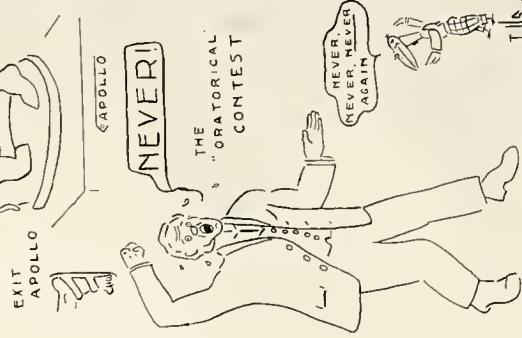 EXIT
APOLLO
APOLLO
NEVER!
THE
"ORATORICAL
CONTEST
NEVER,
NEVER, NEVER
AGAIN